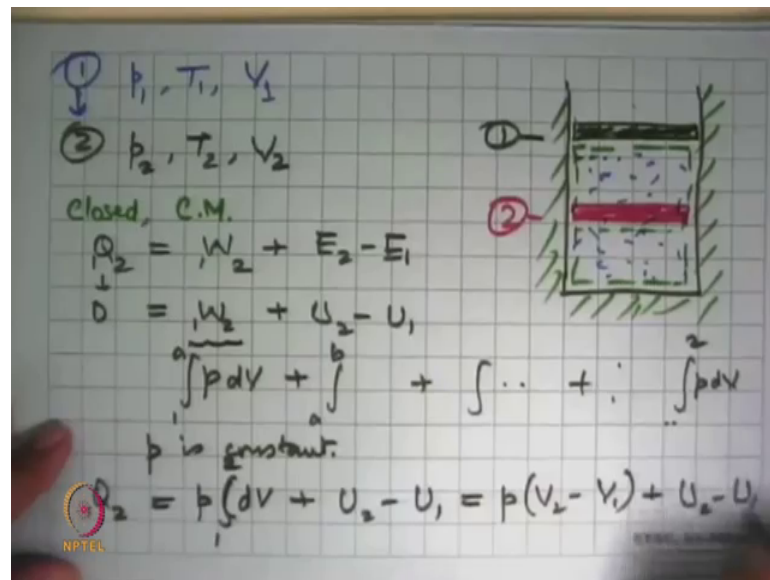 ① p₁, T₁, V₁
② p₂, T₂, V₂
①
②
Closed, C.M.
₁Q₂ = ₁W₂ + E₂ - E₁
0 = ₁W₂ + U₂ - U₁
∫₁ᵃ p dV + ∫ₐᵇ + ∫ ·· + ⋮ ∫..² p dV
p is constant.
Q₂ = p ∫₁² dV + U₂ - U₁ = p(V₂ - V₁) + U₂ - U₁
NPTEL